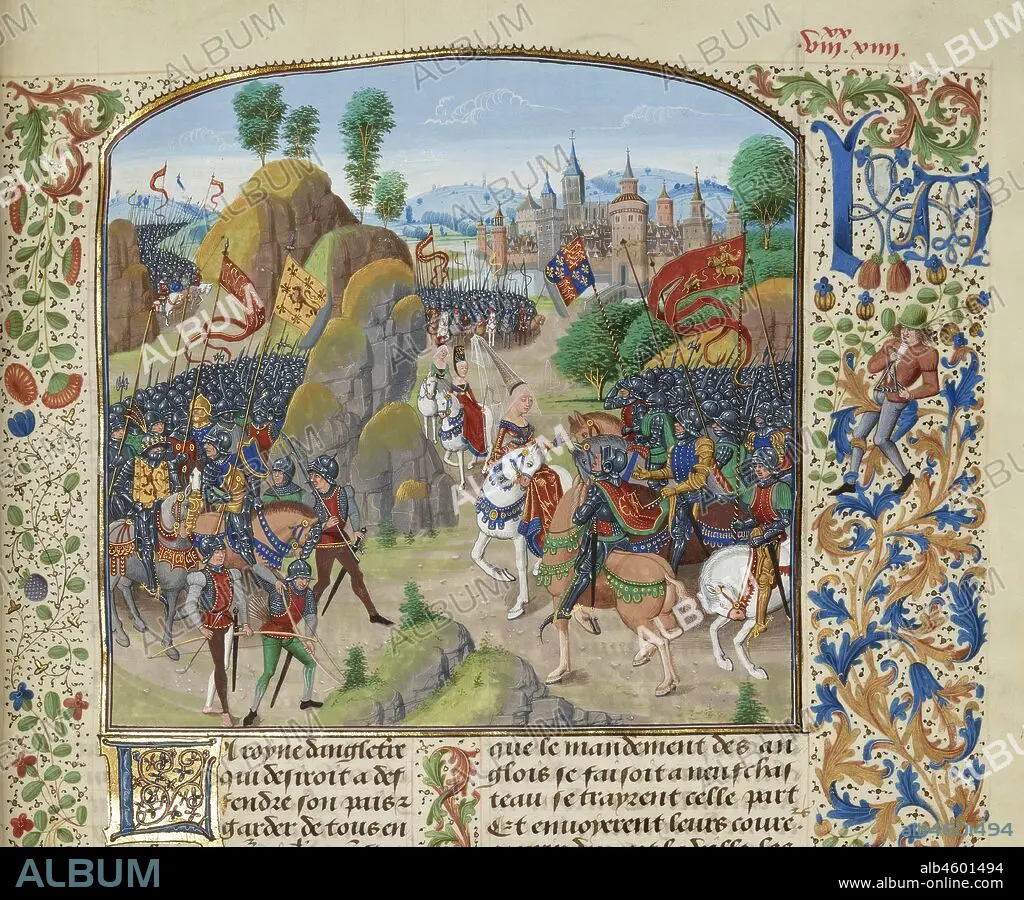 La royne dangletre
qui desiroit a def
fendre son pais z
garder de tous en
que le mandement des an
glois se faisoit a neufchas
teau se trayrent celle part
Et envoyerent leurs coure
alb4601494
ALBUM
alb4601494
www.album-online.com